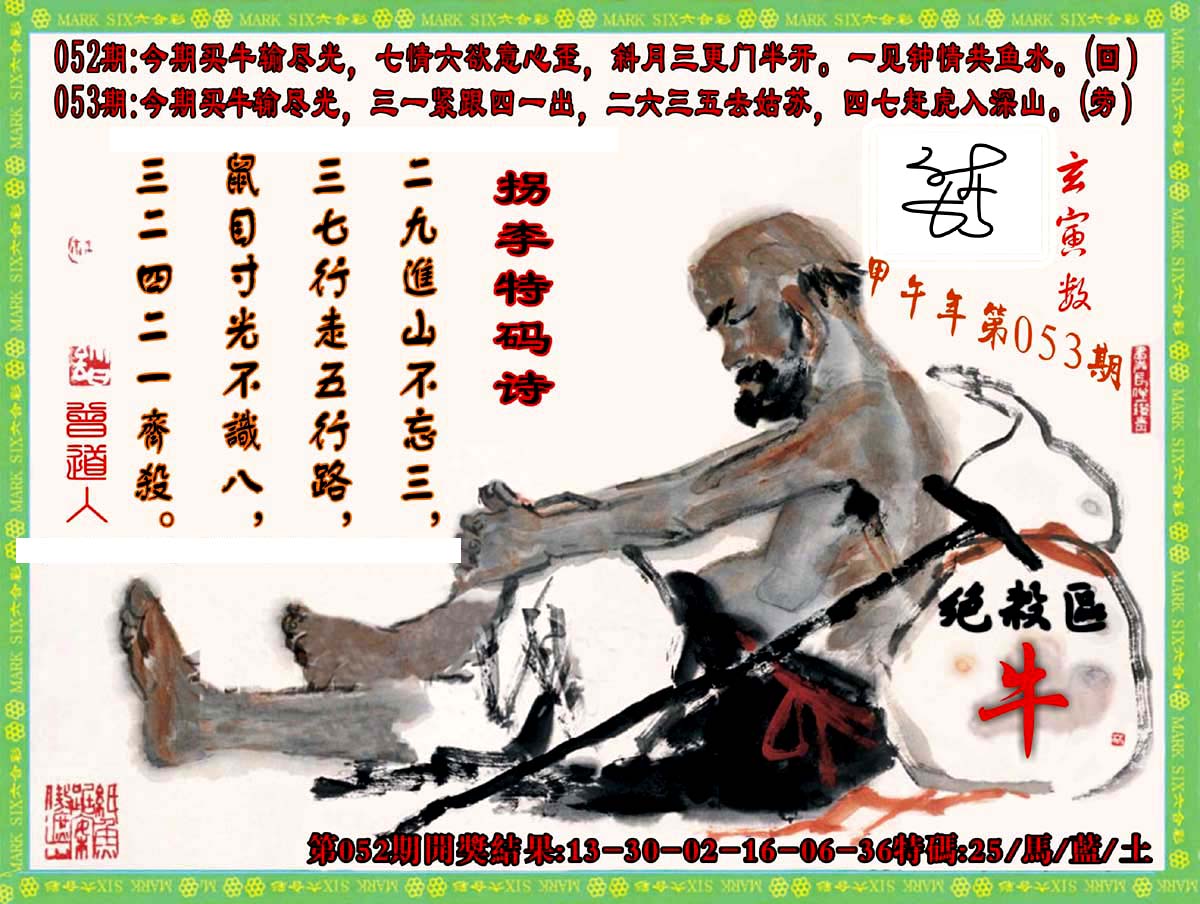 MARK SIX六合彩
052期:今期买牛输尽光，七情六欲意心歪，斜月三更门半开。一见钟情共鱼水。(回)
053期:今期买牛输尽光，三一紧跟四一出，二六三五去姑苏，四七赶虎入深山。(劳)
玄寅数
甲午年第053期
拐李特码诗
二九進山不忘三，
三七行走五行路，
鼠目寸光不識八，
三二四二一齊殺。
曾道人
绝殺區
牛
第052期開獎結果:13-30-02-16-06-36特碼:25/馬/藍/土